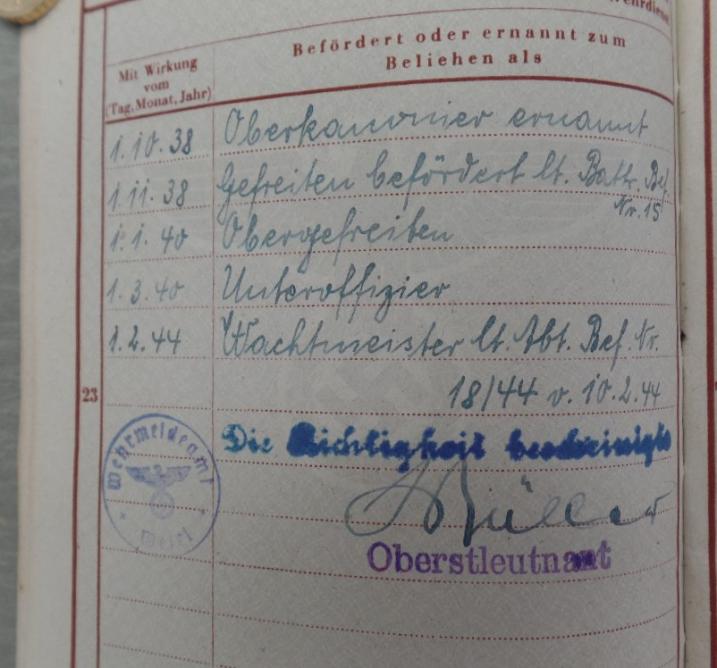 Befördert oder ernannt zum
Beliehen als
Mit Wirkung
vom
(Tag, Monat, Jahr)
1.10.38 Oberkanonier ernannt
1.11.38 Gefreiten befördert lt. Battr. Bef.
Nr. 15
1.1.40 Obergefreiten
1.3.40 Unteroffizier
1.2.44 Wachtmeister lt. Abt. Bef. Nr.
18/44 v. 10.2.44
23
Die Richtigkeit bescheinigt
Wehrmeldeamt
Wesel
Müller
Oberstleutnant